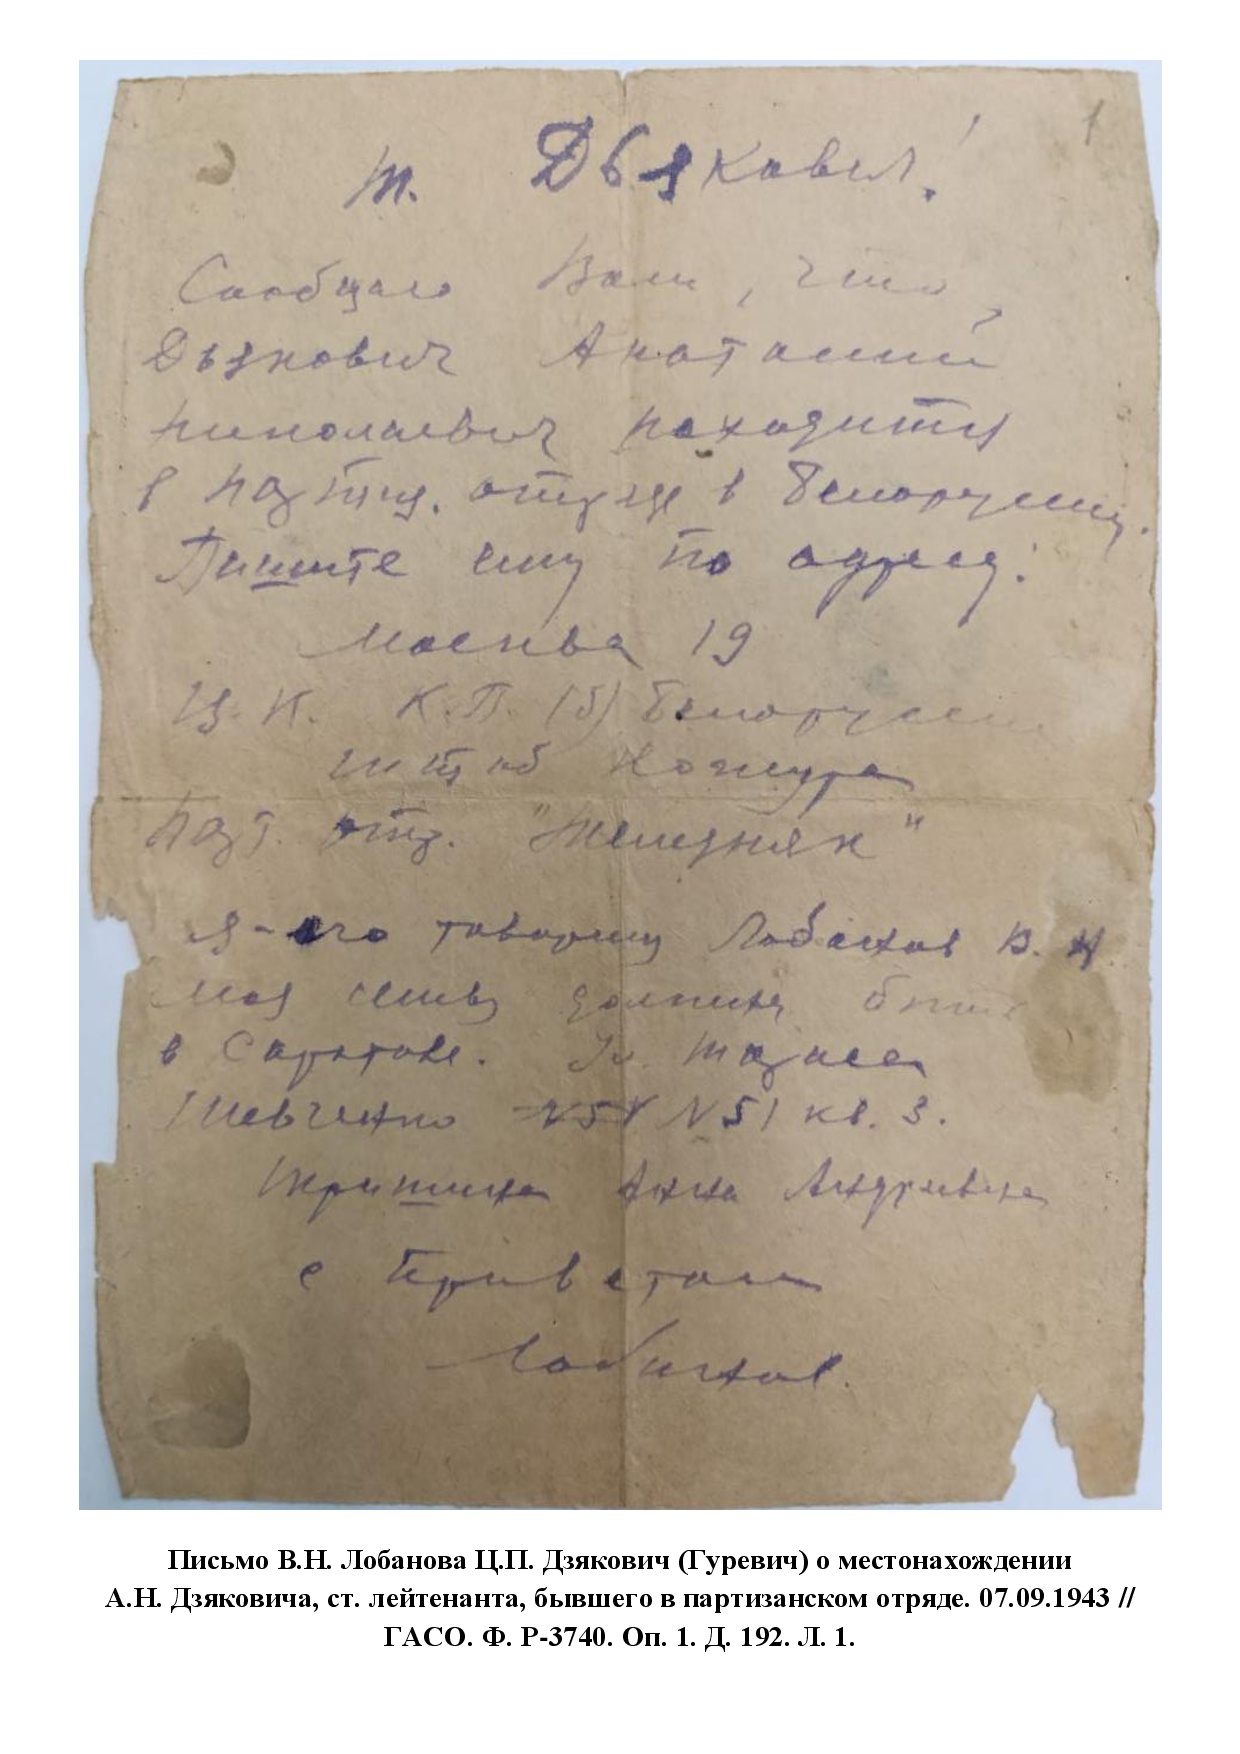 1
т. Дьякович!
Сообщаю Вам, что
Дьякович Анатолий
Николаевич находится
в партиз. отряде в Белоруссии.
Пишите ему по адресу:
Москва 19
Ц.К. К.П.(б) Белоруссии
штаб
Парт. отр. "Железняк"
Я-его товарищ Лобанов В. Н
Моя семья должна быть
в Саратове. Ул. Тараса
Шевченко N51 кв. 3.
Анна Андреевна
с Приветом
Лобанов.
Письмо В.Н. Лобанова Ц.П. Дзякович (Гуревич) о местонахождении
А.Н. Дзяковича, ст. лейтенанта, бывшего в партизанском отряде. 07.09.1943 //
ГАСО. Ф. Р-3740. Оп. 1. Д. 192. Л. 1.